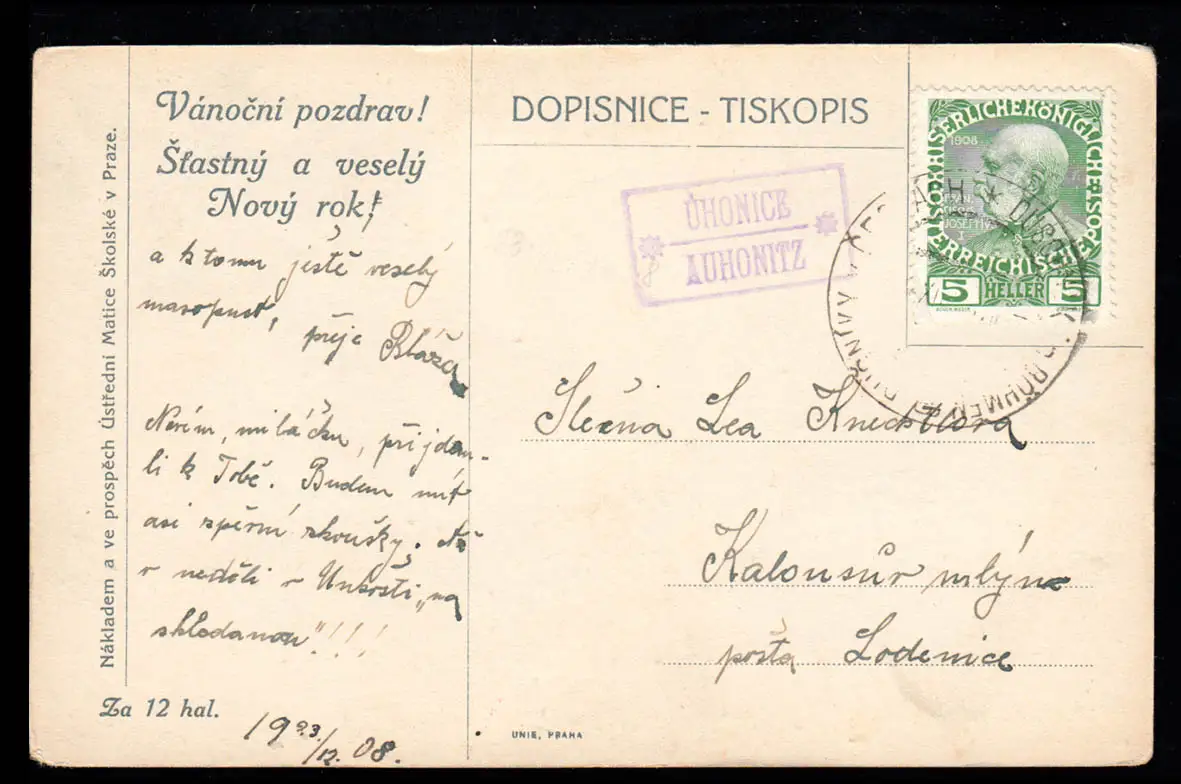 Nákladem a ve prospěch Ústřední Matice Školské v Praze.
Vánoční pozdrav!
Šťastný a veselý
Nový rok!
a k tomu ještě veselý
masopust,
přeje Blážа
Nevím, miláčku, přijdou-
li k Tobě. Budem mít
asi zpěvní zkoušky.
v neděli v Unhošti „na
shledanou"!!!
Za 12 hal.
19 23/12. 08.
DOPISNICE - TISKOPIS
ÚHONICE
AUHONITZ
KAISERLICHEKÖNIGLICHE
1908
ÖSTERREICHISCHE
5 HELLER 5
Slečna Lea Knechtlova
Kalousův mlýn
pošta Lodenice
UNIE, PRAHA